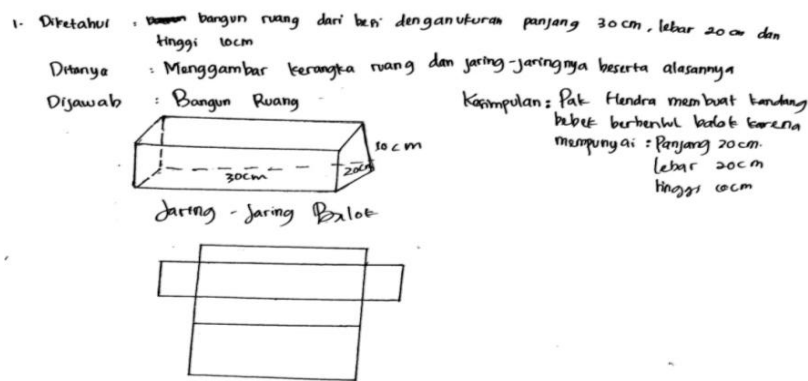 1. Diketahui : bangun ruang dari besi dengan ukuran panjang 30 cm, lebar 20 cm dan
tinggi 10cm
Ditanya : Menggambar kerangka ruang dan jaring-jaringnya beserta alasannya
Dijawab : Bangun Ruang
10 cm
30cm
20cm
Jaring - Jaring Balok
Kesimpulan : Pak Hendra membuat kandang
bebek berbentuk balok karena
mempunyai : Panjang 20cm.
lebar 20cm
tinggi 10cm